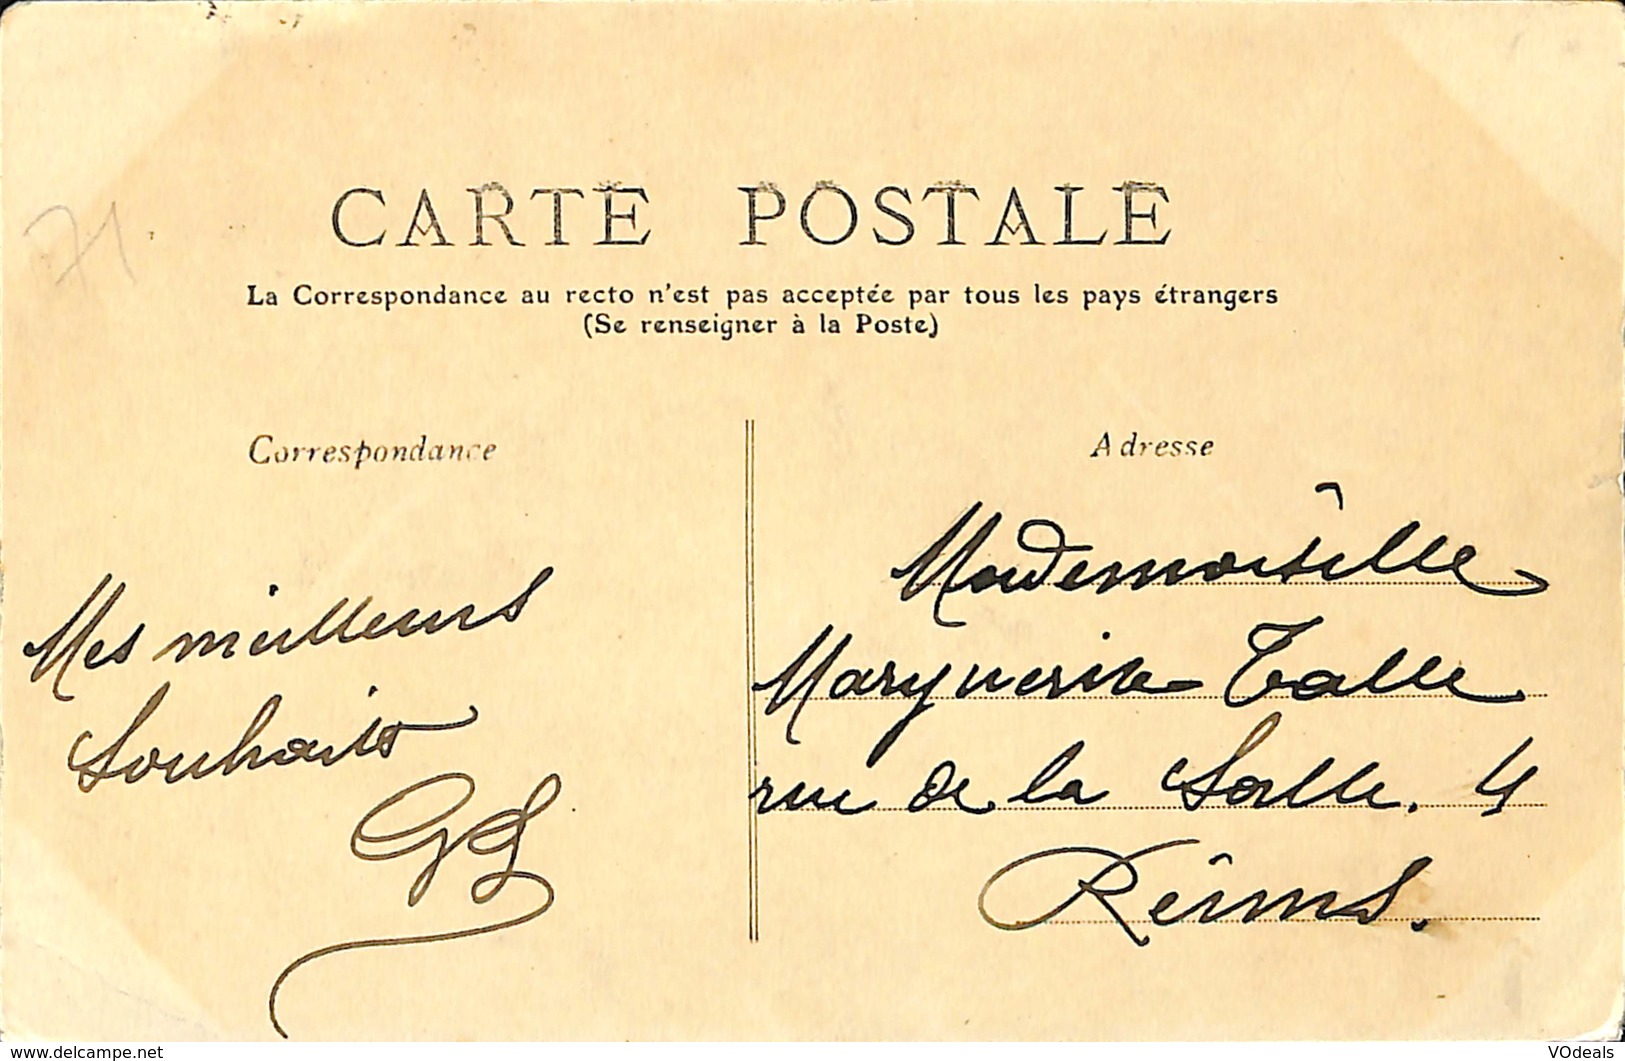 71
CARTE POSTALE
La Correspondance au recto n'est pas acceptée par tous les pays étrangers
(Se renseigner à la Poste)
Correspondance
Mes meilleurs
Souhaits
GS
Adresse
Mademoiselle
Marguerite Talle
rue de la Salle. 4
Reims.
www.delcampe.net
VOdeals